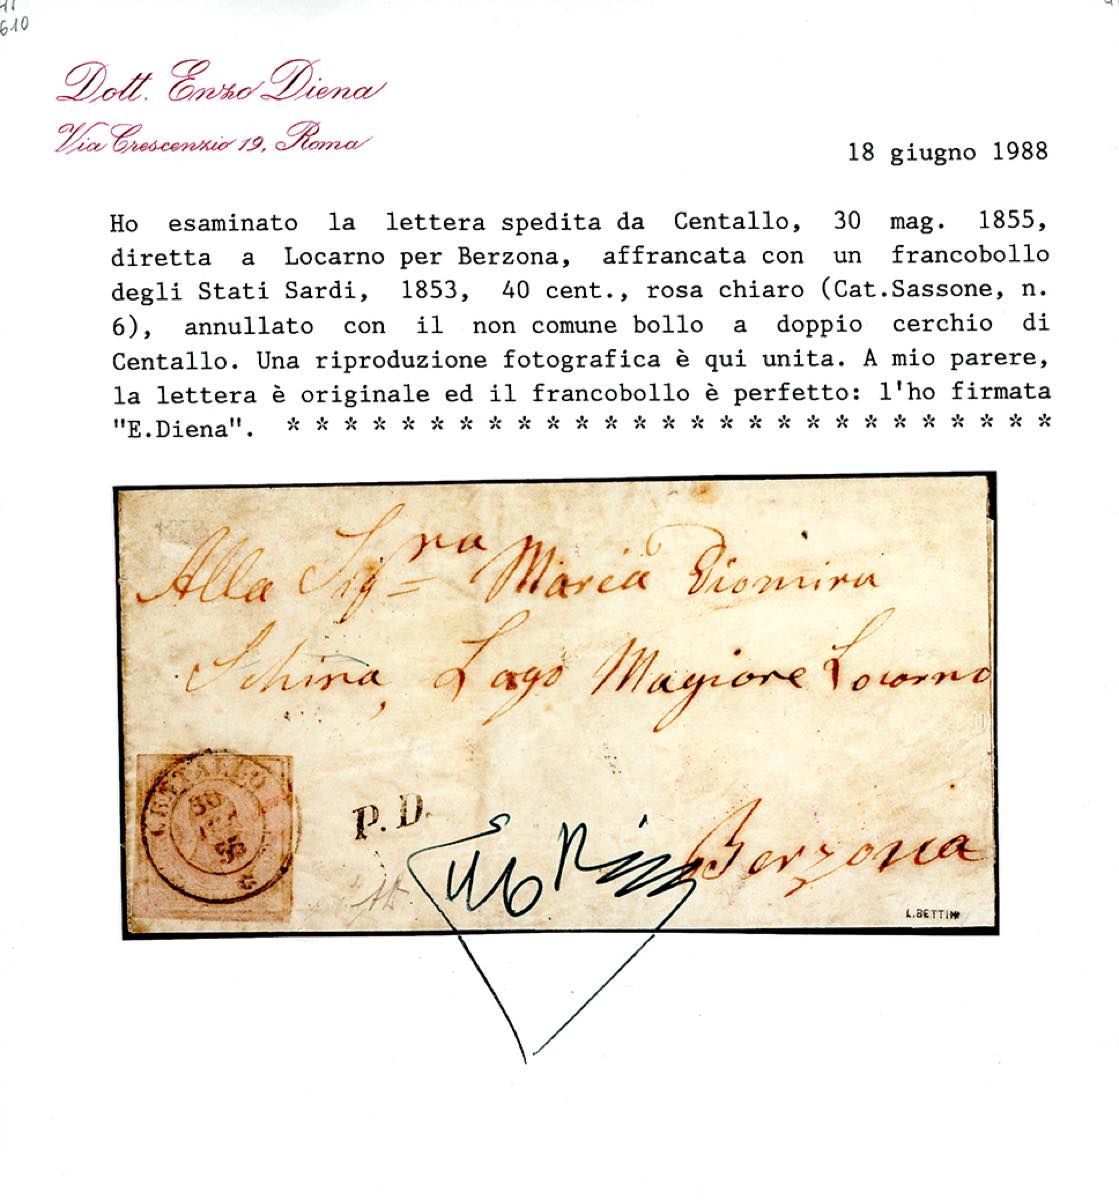 610
Dott. Enzo Diena
Via Crescenzio 19, Roma
18 giugno 1988
Ho esaminato la lettera spedita da Centallo, 30 mag. 1855,
diretta a Locarno per Berzona, affrancata con un francobollo
degli Stati Sardi, 1853, 40 cent., rosa chiaro (Cat.Sassone, n.
6), annullato con il non comune bollo a doppio cerchio di
Centallo. Una riproduzione fotografica è qui unita. A mio parere,
la lettera è originale ed il francobollo è perfetto: l'ho firmata
"E.Diena". * * * * * * * * * * * * * * * * * * * * * * * * * * *
Alla Sig.ra Maria Diomira
Schira, Lago Magiore Locarno
CENTALLO
30
55
P.D.
Berzona
L.BETTINI